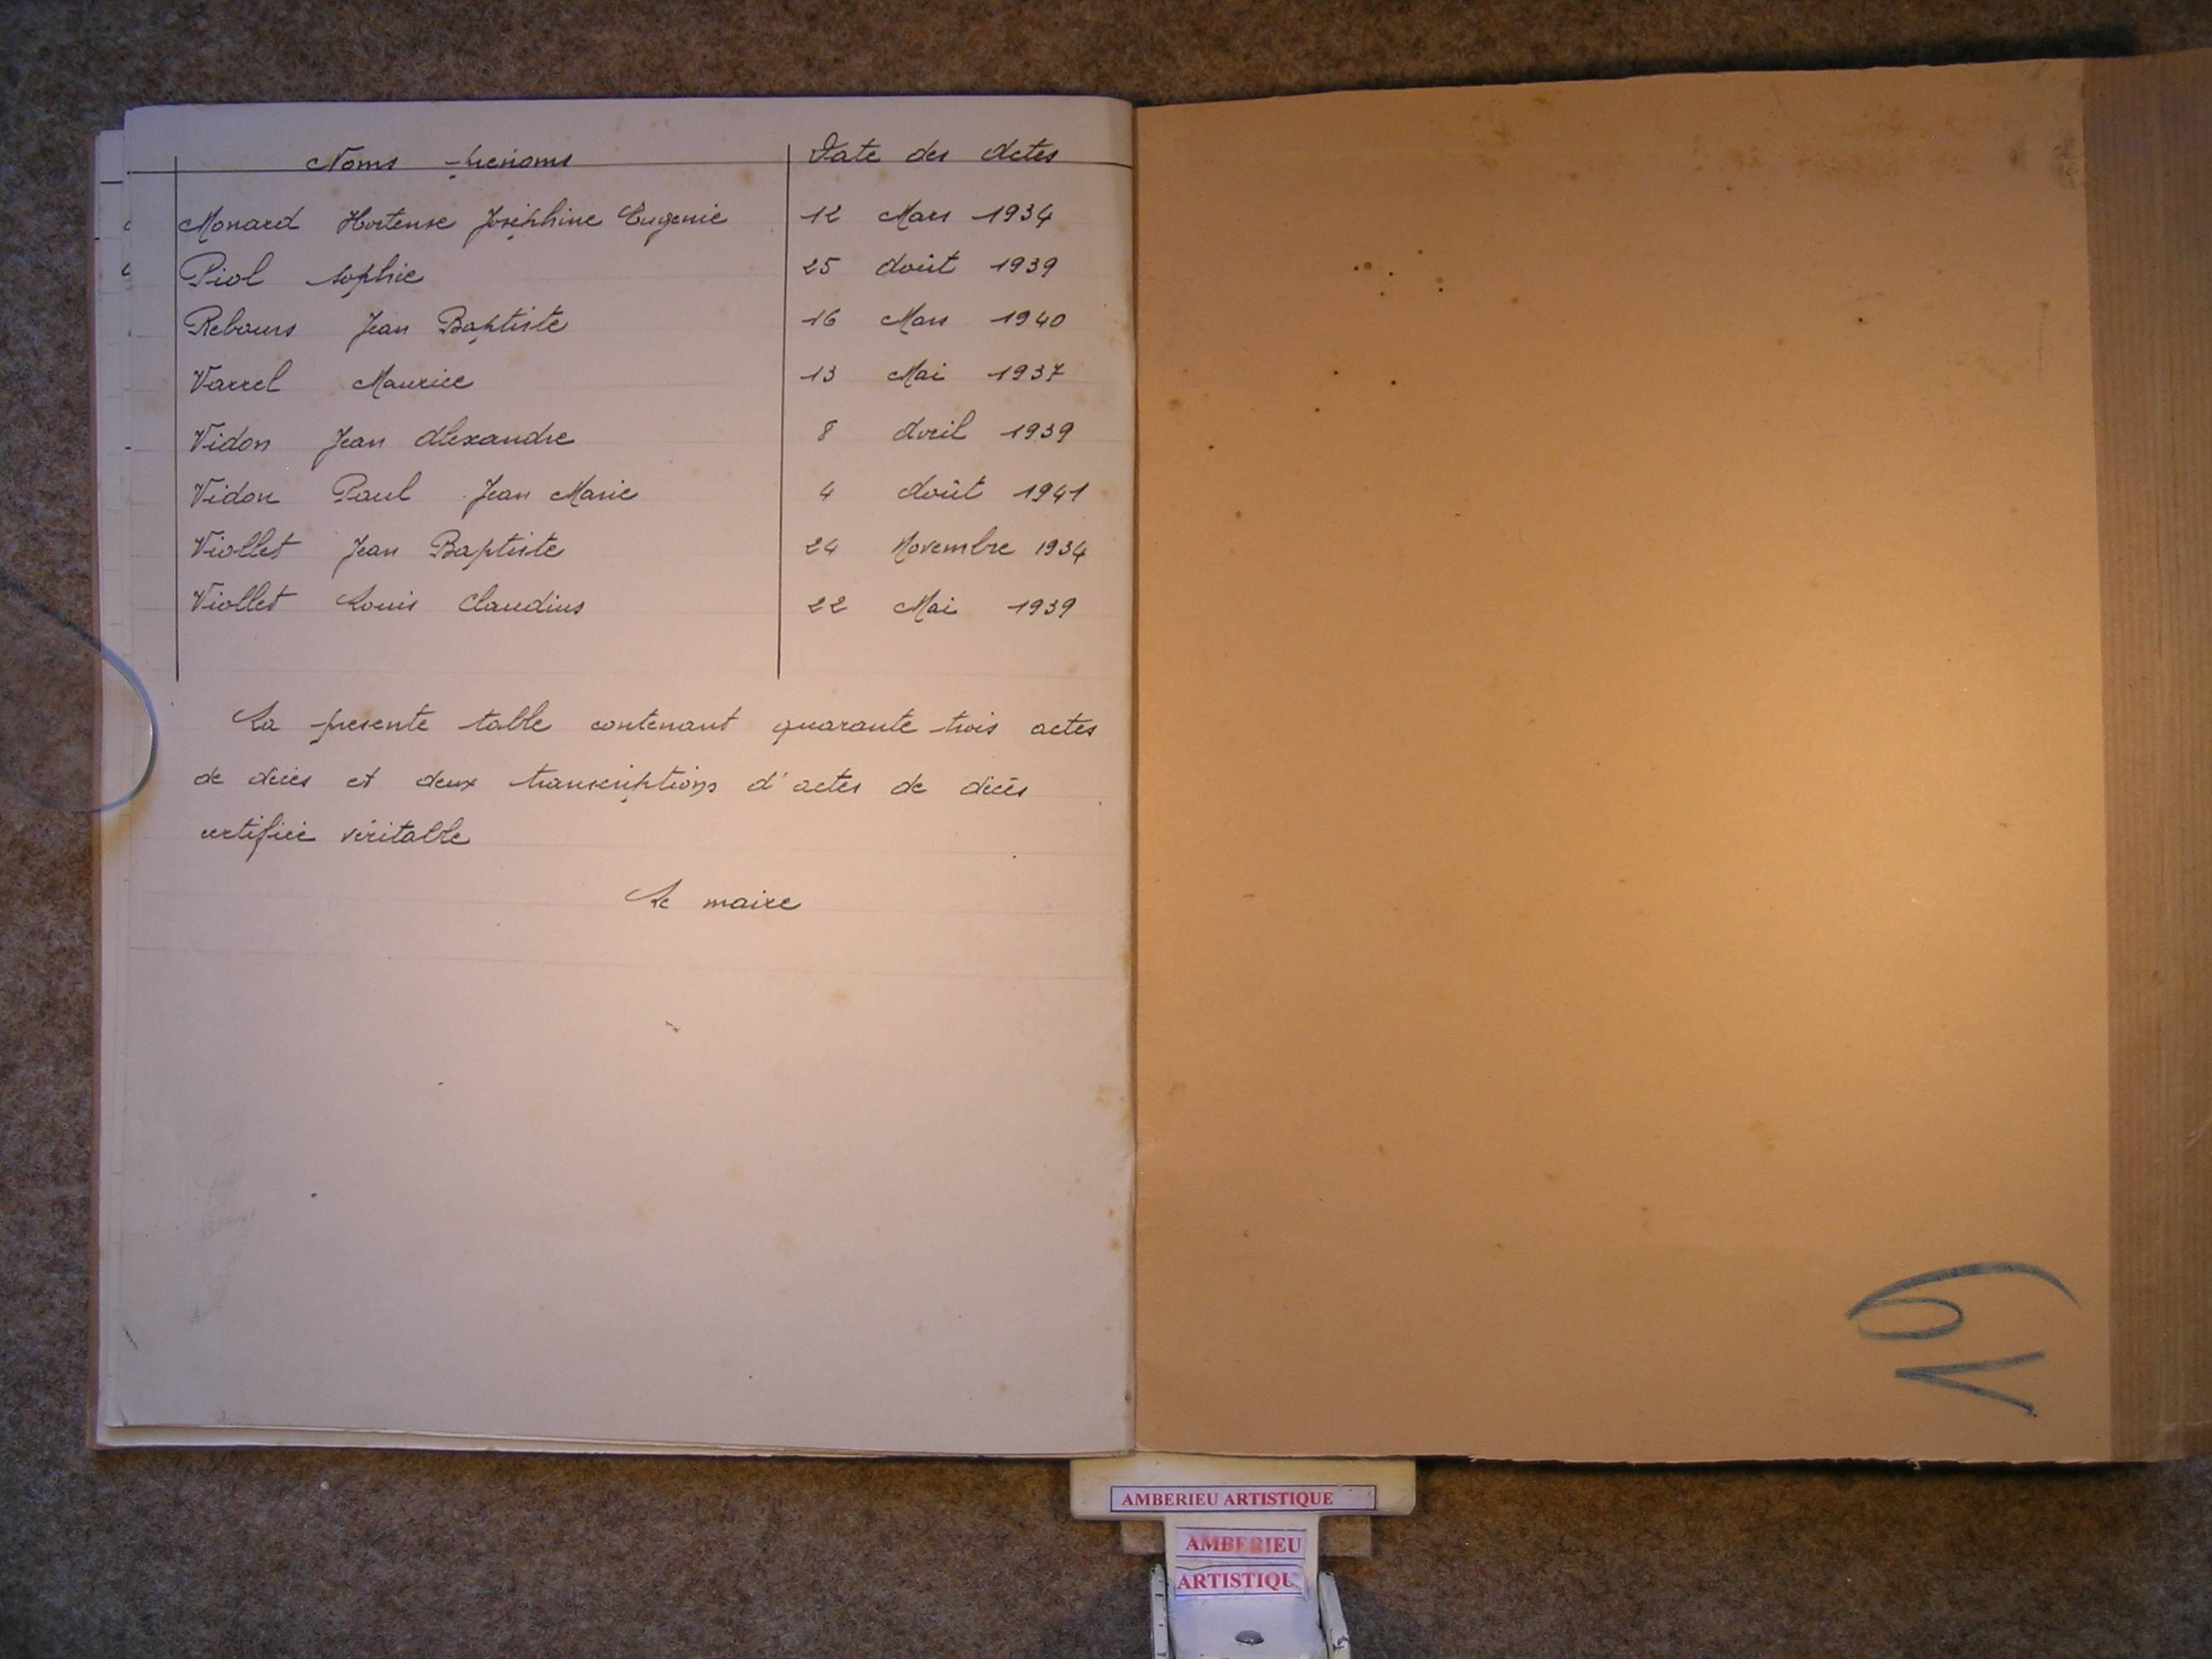 Noms prenoms Date des Actes
Monard Hortense Joséphine Eugenie 12 Mars 1934
Piol sophie 25 Août 1939
Rebours Jean Baptiste 16 Mars 1940
Varrel Maurice 13 Mai 1937
Vidon Jean Alexandre 8 Avril 1939
Vidon Paul Jean Marie 4 Août 1941
Viollet Jean Baptiste 24 Novembre 1934
Viollet Louis Claudius 22 Mai 1939
La presente table contenant quarante trois actes
de décès et deux transcriptions d'actes de décès
certifiée véritable
Le maire
AMBERIEU ARTISTIQUE
AMBERIEU
ARTISTIQU